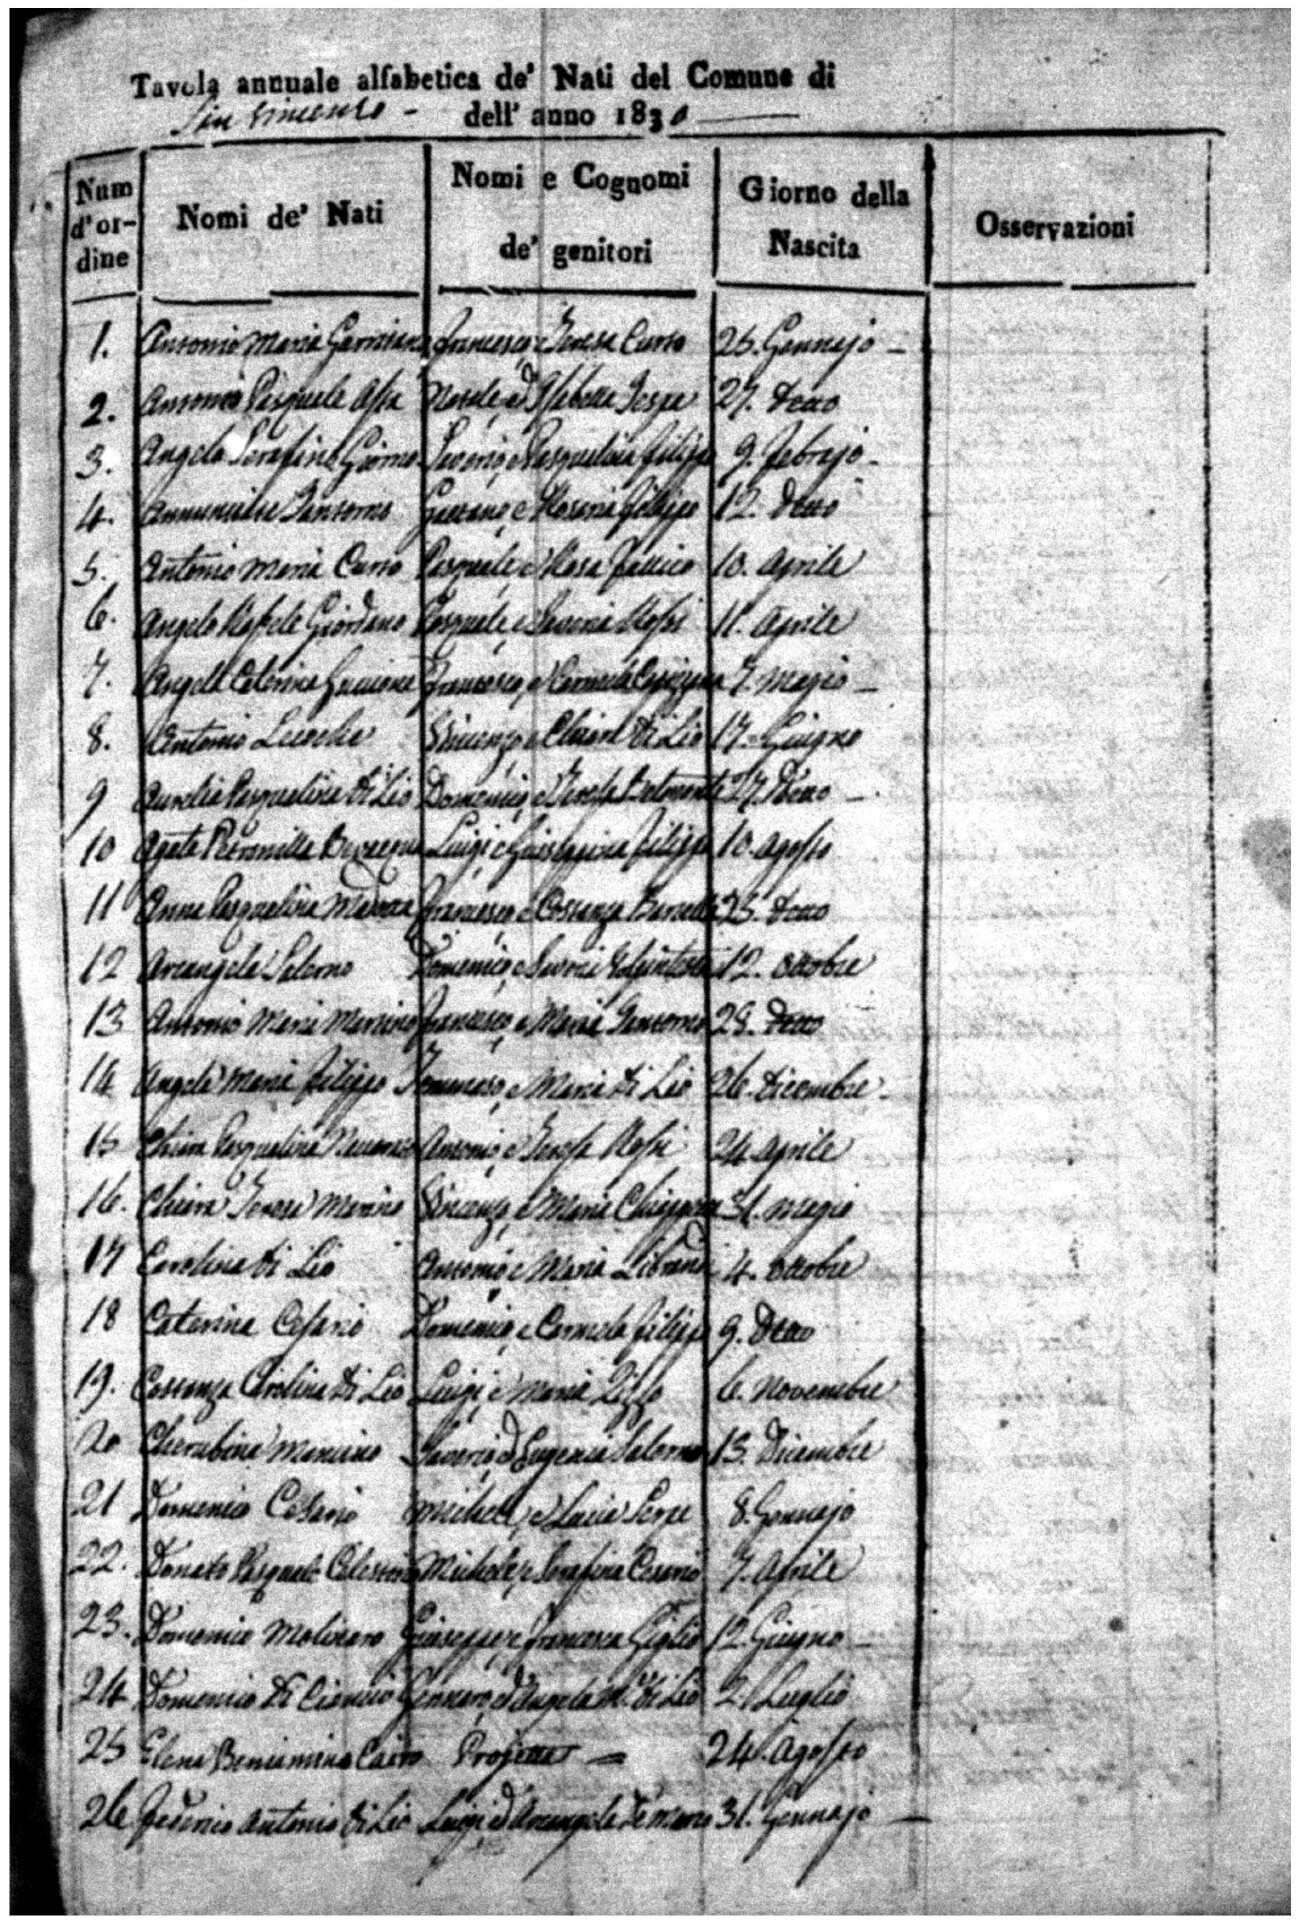 Tavola annuale alfabetica de' Nati del Comune di
San Vincenzo - dell' anno 1830
Num d'ordine Nomi de' Nati Nomi e Cognomi de' genitori Giorno della Nascita Osservazioni
1. Antonio Maria Francesco e Teresa Curto 25. Gennajo
2. Antonio Pasquale ed Elisabetta 27. Detto
3. Angelo Serafino Giorno Saverio e Pasqualina Filippo 9. Febrajo
4. Annunziata Santoro Gaetano e Rosaria Filippo 12. Detto
5. Antonio Maria Curto Pasquale e Rosa 10. Aprile
6. Angelo Rafele Giordano Pasquale e Saveria Rossi 11. Aprile
7. Angela Caterina Francesco e Carmela 7. Magio
8. Antonio Vincenzo e Chiara di Lio 17. Giugno
9 Aurelia Pasqualina di Lio Domenico e Teresa Belmonte 27. Detto
10 Agata Petronilla Luigi e Giuseppina Filippo 10. Agosto
11 Anna Pasqualina Francesco e Costanza 23. Detto
12 Arcangela Salerno Domenico e 12. Ottobre
13 Antonio Maria Francesco e Maria Santoro 28. Detto
14 Angela Maria Filippo Tommaso e Maria di Lio 26. Dicembre
15 Chiara Pasqualina Antonio e Teresa Rossi 24 Aprile
16. Chiara Teresa Marino Vincenzo e Maria Chiappetta 31. Magio
17 Carolina di Lio Antonio e Maria 4. Ottobre
18 Caterina Cesario Domenico e Carmela Filippo 9. Detto
19. Costanza Carolina di Lio Luigi e Maria 6. Novembre
20 Cherubina Mancino Saverio ed Eugenia Salerno 13. Dicembre
21 Domenico Cesario Michele e Lucia Serpe 8. Gennajo
22. Donato Pasquale Celestino Michele e Serafina Cesario 7. Aprile
23. Domenico Molinaro Giuseppe e Francesca Giglio 12. Giugno
24 Domenico di Cianccio Gennaro ed Angela M.a di Lio 2. Luglio
25 Elena Beniamina Cairo Projetta 24. Agosto
26 Federico Antonio di Lio Luigi ed Arcangela de Marco 31. Gennajo